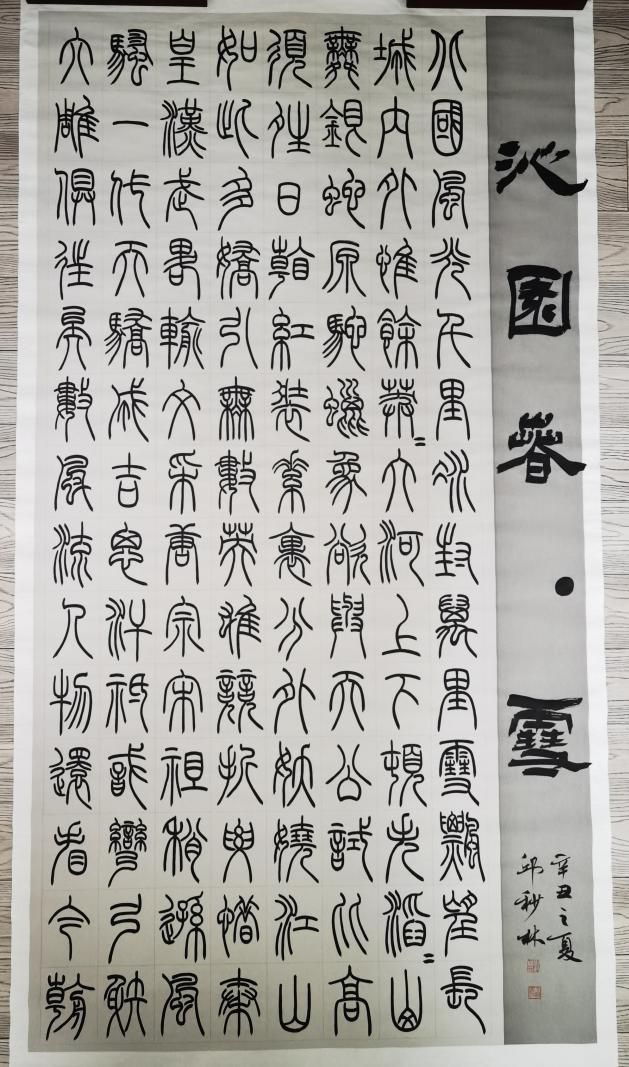 沁園春·雪
北國風光千里冰封萬里雪飄望長
城內外惟餘莽〓大河上下頓失滔〓山
舞銀蛇原馳蠟象欲與天公試比高
須晴日看紅裝素裹分外妖嬈江山
如此多嬌引無數英雄競折腰惜秦
皇漢武略輸文采唐宗宋祖稍遜風
騷一代天驕成吉思汗祇識彎弓射
大雕俱往矣數風流人物還看今朝
辛丑之夏
邱秒林